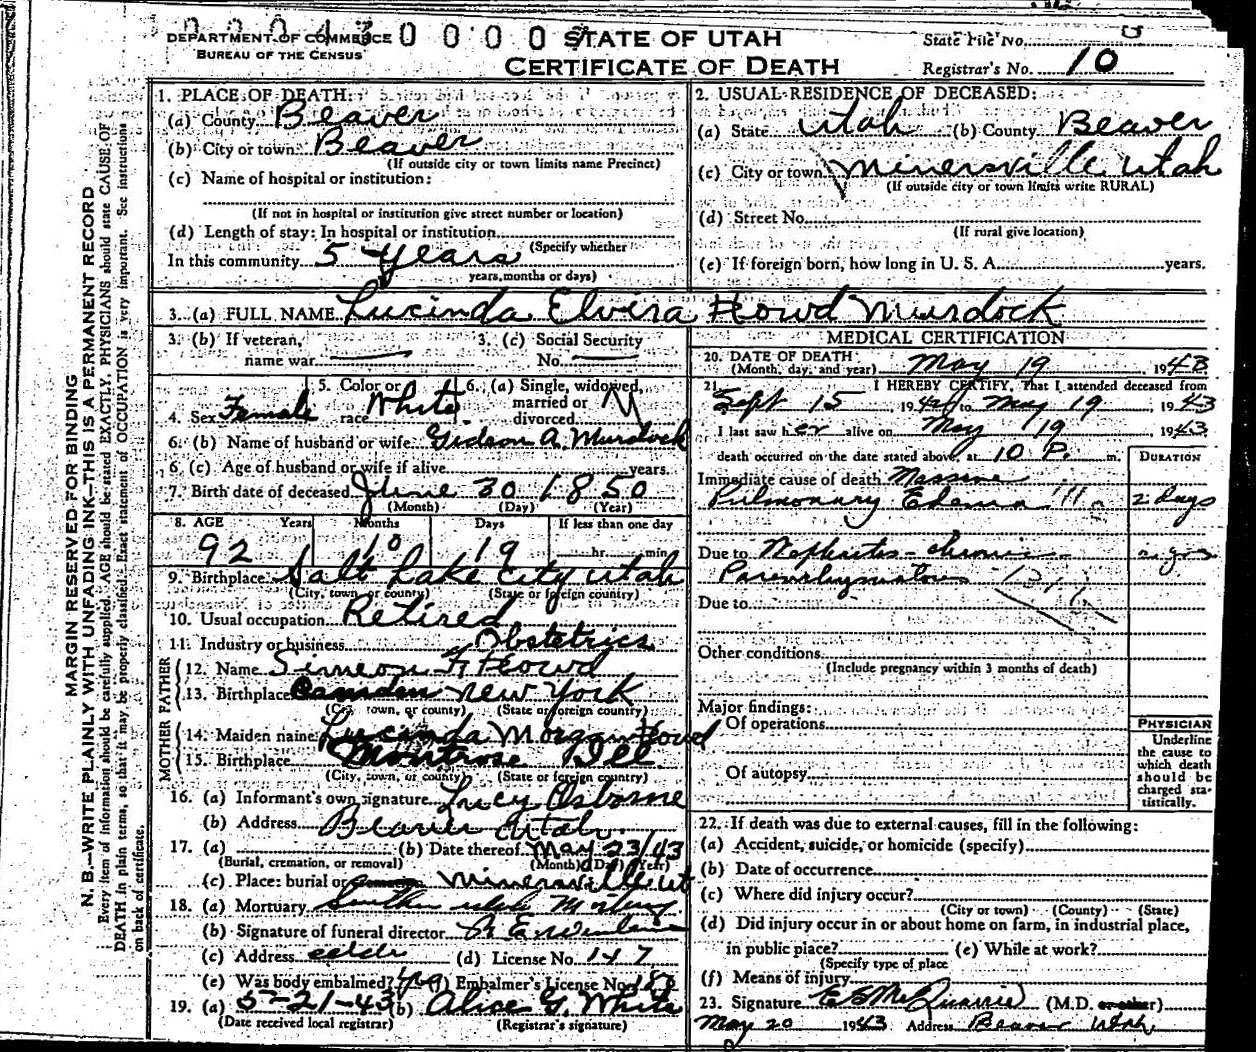 0 0 0 0
DEPARTMENT OF COMMERCE
BUREAU OF THE CENSUS
STATE OF UTAH
CERTIFICATE OF DEATH
State File No.
Registrar's No. 10
MARGIN RESERVED FOR BINDING
N. B.—WRITE PLAINLY WITH UNFADING INK—THIS IS A PERMANENT RECORD
Every item of information should be carefully supplied. AGE should be stated EXACTLY. PHYSICIANS should state CAUSE OF
DEATH in plain terms, so that it may be properly classified. Exact statement of OCCUPATION is very important. See instructions
on back of certificate.
1. PLACE OF DEATH:
(a) County Beaver
(b) City or town Beaver
(If outside city or town limits name Precinct)
(c) Name of hospital or institution:
(If not in hospital or institution give street number or location)
(d) Length of stay: In hospital or institution
(Specify whether
In this community 5 years
years, months or days)
2. USUAL RESIDENCE OF DECEASED:
(a) State Utah (b) County Beaver
(c) City or town Minersville Utah
(If outside city or town limits write RURAL)
(d) Street No.
(If rural give location)
(e) If foreign born, how long in U. S. A. years.
3. (a) FULL NAME Lucinda Elvira Howd Murdock
3. (b) If veteran, 3. (c) Social Security
name war No.
5. Color or 6. (a) Single, widowed,
married or M
4. Sex Female race White divorced
6. (b) Name of husband or wife Gideon A. Murdock
6. (c) Age of husband or wife if alive years.
7. Birth date of deceased June 30 1850
(Month) (Day) (Year)
8. AGE Years Months Days If less than one day
92 10 19 hr. min.
9. Birthplace Salt Lake City Utah
(City, town, or county) (State or foreign country)
10. Usual occupation Retired
11. Industry or business Obstetrics
FATHER
12. Name Simeon F Howd
13. Birthplace Camden New York
(City, town, or county) (State or foreign country)
MOTHER
14. Maiden name Lucinda Morgan Howd
15. Birthplace Montrose Ill
(City, town, or county) (State or foreign country)
16. (a) Informant's own signature Lucy Osborne
(b) Address Beaver Utah.
17. (a) (b) Date thereof May 23/43
(Burial, cremation, or removal) (Month) (Day) (Year)
(c) Place: burial or Minersville Ut
18. (a) Mortuary Southern Utah Mortuary
(b) Signature of funeral director
(c) Address (d) License No. 147
(e) Was body embalmed? Yes (f) Embalmer's License No.
19. (a) 5-21-43 (b) Alice G. White
(Date received local registrar) (Registrar's signature)
MEDICAL CERTIFICATION
20. DATE OF DEATH
(Month, day, and year) May 19, 1943
21. I HEREBY CERTIFY, That I attended deceased from
Sept 15 1942 to May 19, 1943
I last saw her alive on May 19 1943
death occurred on the date stated above, at 10 P. m.
DURATION
Immediate cause of death Massive
Pulmonary Edema 2 days
Due to Nephritis - chronic
Parenchymatous
Due to
Other conditions
(Include pregnancy within 3 months of death)
Major findings:
Of operations
Of autopsy
PHYSICIAN
Underline
the cause to
which death
should be
charged sta-
tistically.
22. If death was due to external causes, fill in the following:
(a) Accident, suicide, or homicide (specify)
(b) Date of occurrence
(c) Where did injury occur?
(City or town) (County) (State)
(d) Did injury occur in or about home on farm, in industrial place,
in public place? (e) While at work?
(Specify type of place
(f) Means of injury
23. Signature E S McQuarrie (M.D. or other)
May 20 1943 Address Beaver Utah